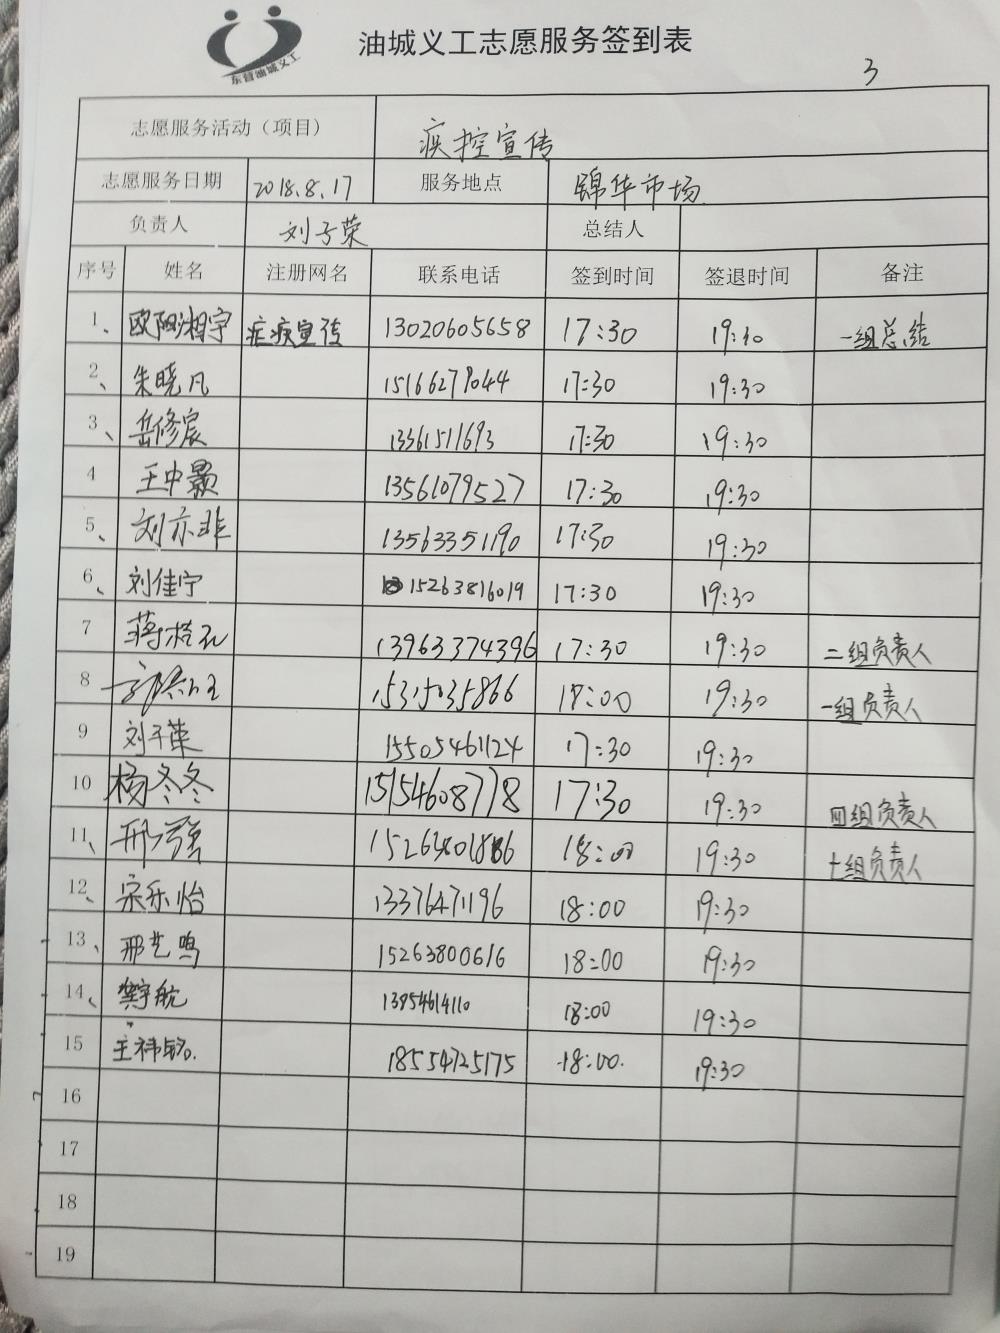 东营油城义工
油城义工志愿服务签到表
3
志愿服务活动（项目） 疾控宣传
志愿服务日期 2018.8.17 服务地点 锦华市场
负责人 刘子荣 总结人
序号 姓名 注册网名 联系电话 签到时间 签退时间 备注
1、 欧阳湘宇 疾宣传 13020605658 17:30 19:30 一组总结
2、 朱晓凡 15166279044 17:30 19:30
3、 岳修宸 13361511693 17:30 19:30
4 王中 13561079527 17:30 19:30
5、 刘亦非 13563351190 17:30 19:30
6、 刘佳宁 15263816019 17:30 19:30
7 蒋 13963374396 17:30 19:30 二组负责人
8 15315035866 18:00 19:30 一组负责人
9 刘子荣 15505461124 17:30 19:30
10 杨冬冬 15154608778 17:30 19:30 四组负责人
11、 邢 18:00 19:30 七组负责人
12、 宗乐怡 13376471196 18:00 19:30
13、 邢艺鸣 15263800616 18:00 19:30
14、 宇航 13954614110 18:00 19:30
15 18554725175 18:00. 19:30
16
17
18
19